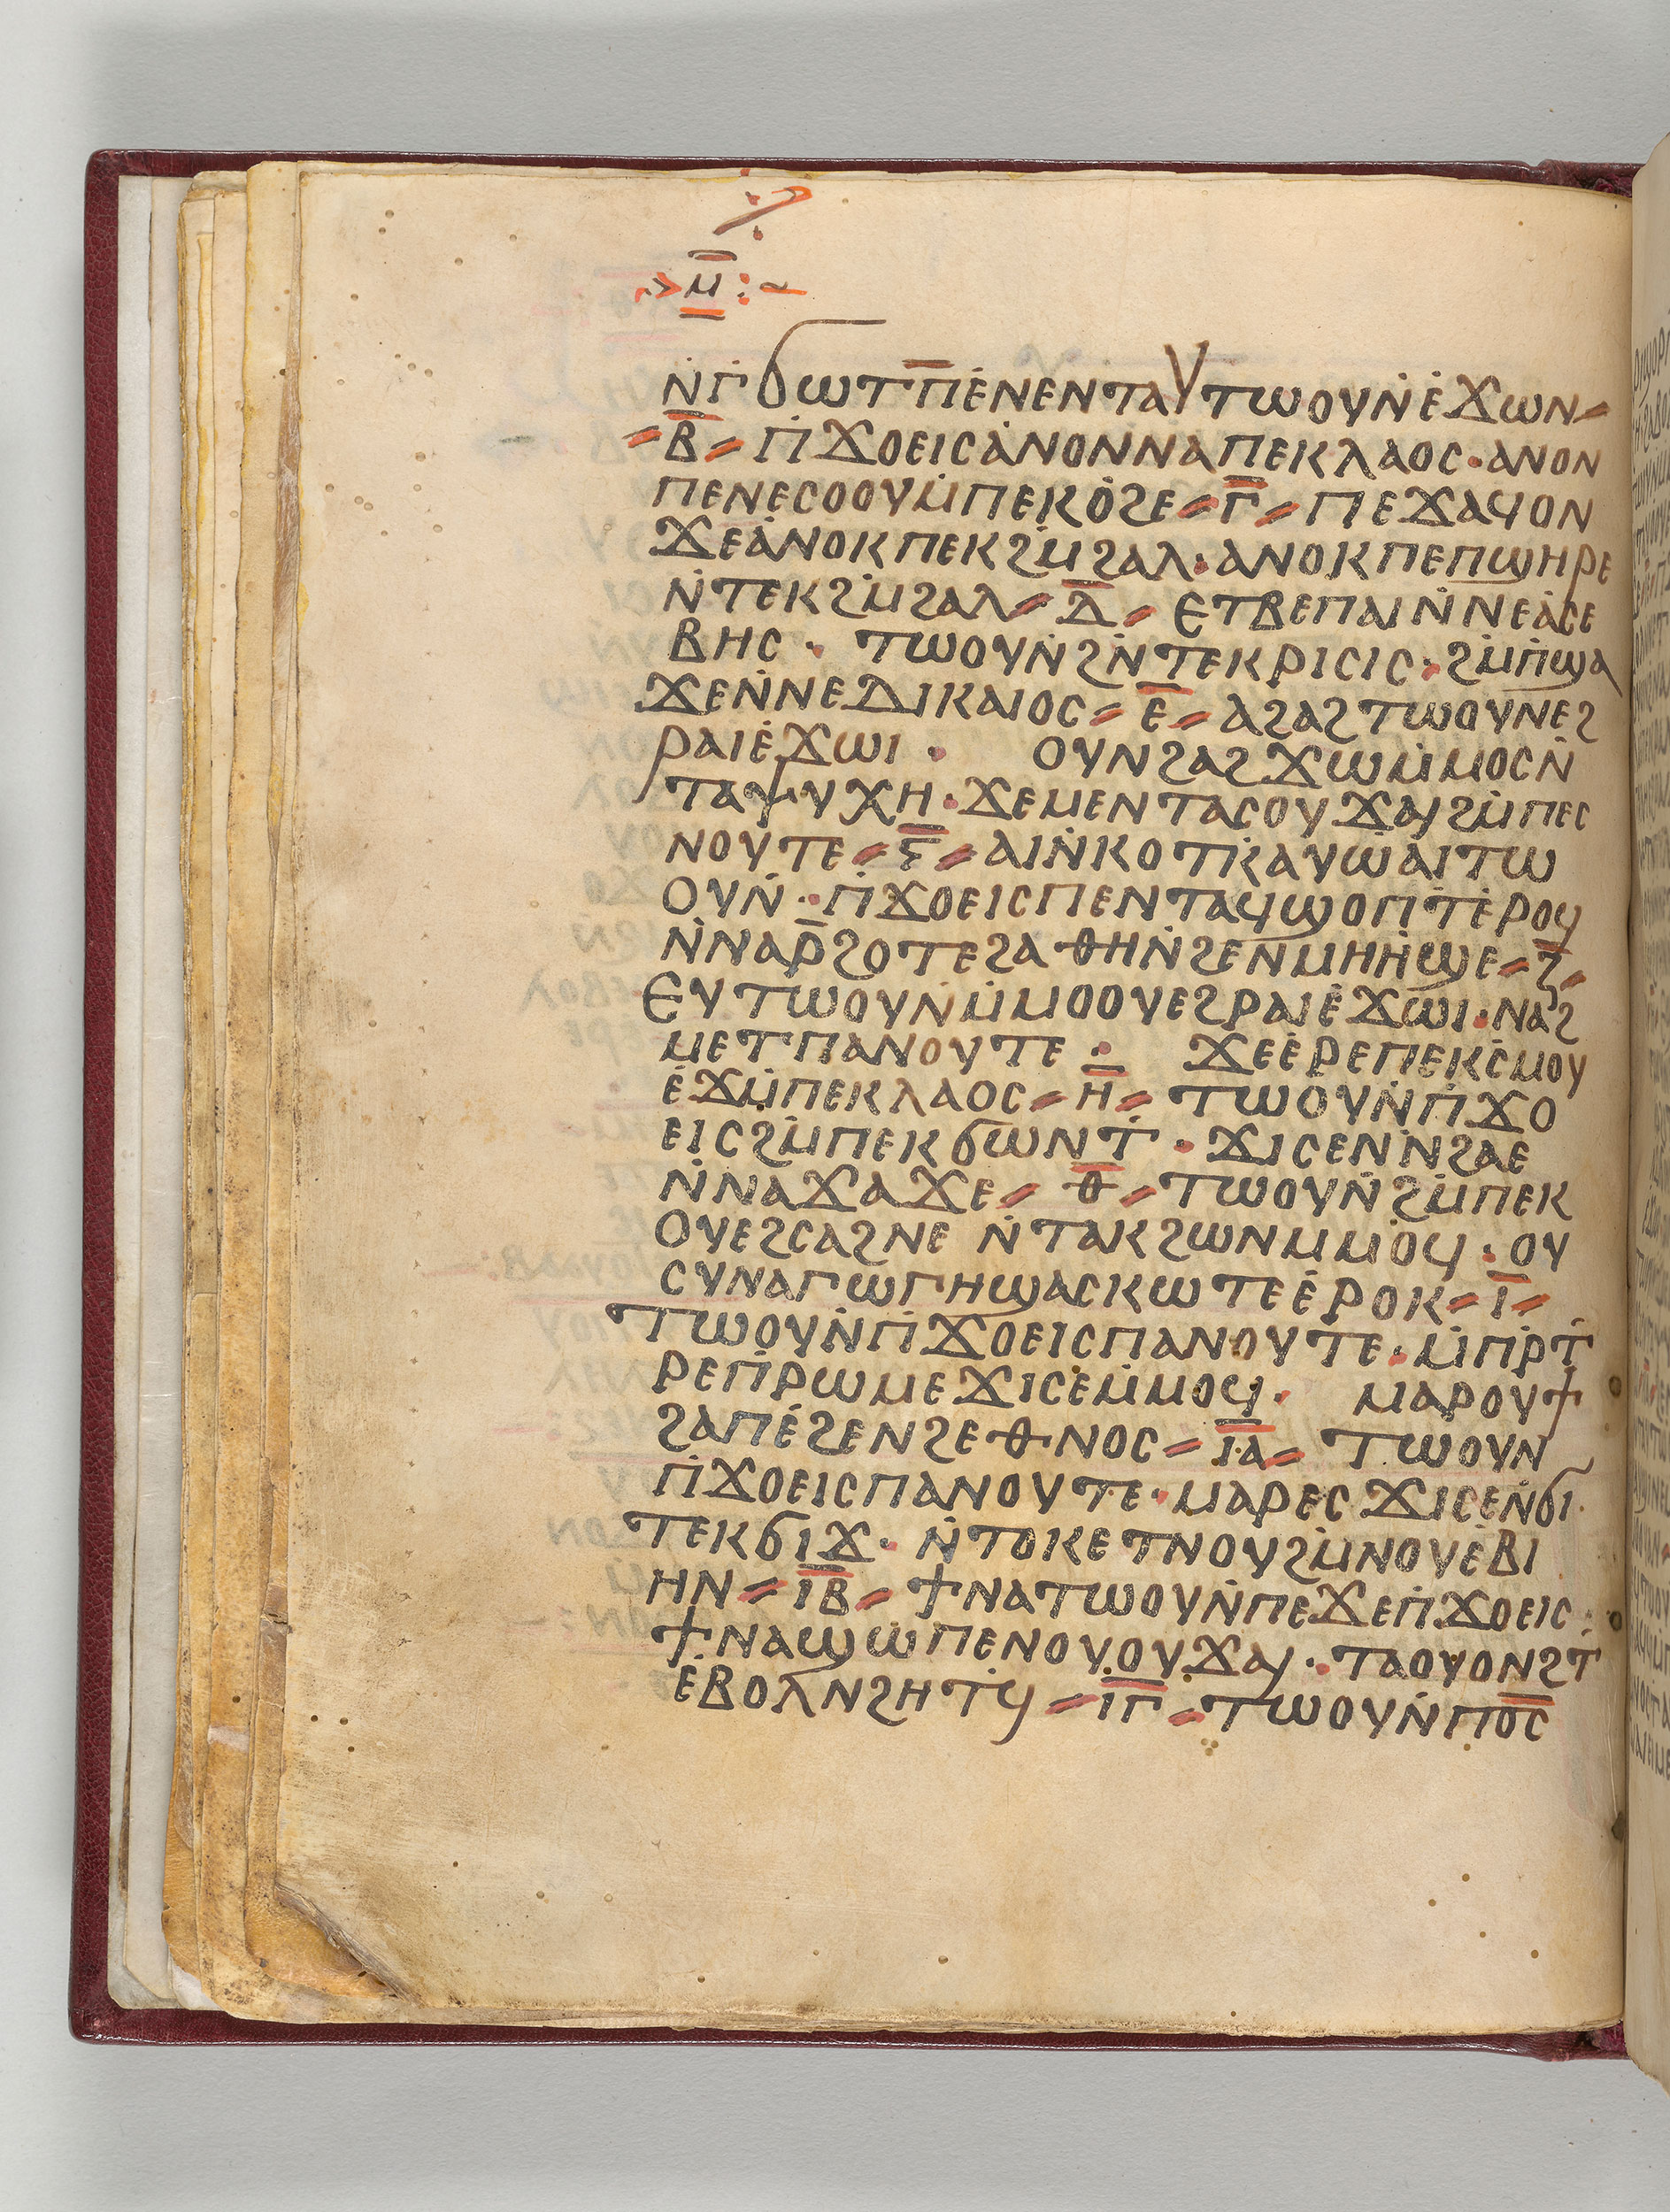 ⲙ̅
ⲛ̇ⲅ̇ϭⲱⲧⲡ̅ⲉ̇ⲛⲉⲛⲧⲁⲩⲧⲱⲟⲩⲛ̇ⲉ̇ϫⲱⲛ
ⲃ̅ ⲡ̇ϫⲟⲉⲓⲥⲁ̇ⲛⲟⲛⲛⲁⲡⲉⲕⲗⲁⲟⲥ · ⲁⲛⲟⲛ
ⲡⲉⲛⲉⲥⲟⲟⲩⲙ̇ⲡⲉⲕⲟ̇ϩⲉ ⲅ̅ ⲡⲉϫⲁϥⲟⲛ
ϫⲉⲁ̇ⲛⲟⲕⲡⲉⲕϩⲙ̇ϩⲁⲗ · ⲁⲛⲟⲕⲡⲉⲡϣⲏⲣⲉ
ⲛ̇ⲧⲉⲕϩⲙ̇ϩⲁⲗ ⲇ̅ ⲉⲧⲃⲉⲡⲁⲓⲛ̇ⲛⲉⲁ̇ⲥⲉ
ⲃⲏⲥ · ⲧⲱⲟⲩⲛ̇ϩⲛ̇ⲧⲉⲕⲣⲓⲥⲓⲥ · ϩⲙ̇ⲡ̇ϣⲁ
ϫⲉⲛ̇ⲛⲉⲇⲓⲕⲁⲓⲟⲥ ⲉ̅ ⲁϩⲁϩⲧⲱⲟⲩⲛⲉϩ
ⲣⲁⲓⲉ̇ϫⲱⲓ · ⲟⲩⲛϩⲁϩϫⲱⲙ̇ⲙⲟⲥⲛ̇
ⲧⲁⲯⲩⲭⲏ · ϫⲉⲙⲉⲛⲧⲁⲥⲟⲩϫⲁⲓϩⲙ̇ⲡⲉⲥ
ⲛⲟⲩⲧⲉ ⲋ̅ ⲁⲓⲛ̇ⲕⲟⲧⲕ̇ⲁⲩⲱ̇ⲁⲓⲧⲱ
ⲟⲩⲛ̇ · ⲡ̇ϫⲟⲉⲓⲥⲡⲉⲛⲧⲁϥϣⲟⲡ̇ⲧ̇ⲉ̇ⲣⲟϥ
ⲛ̇ⲛⲁⲣ̅ϩⲟⲧⲉϩⲁⲑⲏⲛ̇ϩⲉⲛⲙⲏⲏ̇ϣⲉ ⲍ̅
ⲉⲩⲧⲱⲟⲩⲛ̇ⲙ̇ⲙⲟⲟⲩⲉϩⲣⲁⲓⲉ̇ϫⲱⲓ · ⲛⲁϩ
ⲙⲉⲧⲡⲁⲛⲟⲩⲧⲉ · ϫⲉⲉ̇ⲣⲉⲡⲉⲕⲥ̇ⲙⲟⲩ
ⲉ̇ϫⲙ̇ⲡⲉⲕⲗⲁⲟⲥ ⲏ̅ ⲧⲱⲟⲩⲛ̇ⲡ̇ϫⲟ
ⲉⲓⲥϩⲙ̇ⲡⲉⲕϭⲱⲛⲧ̇ · ϫⲓⲥⲉⲛⲛ̇ϩⲁⲉ
ⲛ̇ⲛⲁϫⲁϫⲉ ⲑ̅ ⲧⲱⲟⲩⲛ̇ϩⲙ̇ⲡⲉⲕ
ⲟⲩⲉϩⲥⲁϩⲛⲉ ⲛ̇ⲧⲁⲕϩⲱⲛⲙⲙⲟ̇ϥ · ⲟⲩ
ⲥⲩⲛⲁⲅⲱⲅⲏϣⲁⲥⲕⲱⲧⲉⲉ̇ⲣⲟⲕ ⲓ̅
ⲧⲱⲟⲩⲛ̇ⲡ̇ϫⲟⲉⲓⲥⲡⲁⲛⲟⲩⲧⲉ · ⲙ̇ⲡⲣ̇ⲧ̇
ⲣⲉⲡ̇ⲣⲱⲙⲉϫⲓⲥⲉⲙ̇ⲙⲟϥ · ⲙⲁⲣⲟⲩϯ
ϩⲁⲡⲉ̇ϩⲉⲛϩⲉⲑⲛⲟⲥ ⲓ̅ⲁ̅ ⲧⲱⲟⲩⲛ
ⲡ̇ϫⲟⲉⲓⲥⲡⲁⲛⲟⲩⲧⲉ · ⲙⲁⲣⲉⲥϫⲓⲥⲉⲛ̇ϭⲓ
ⲧⲉⲕϭⲓϫ · ⲛ̇ⲧⲟⲕⲉⲧⲛⲟⲩϩⲙ̇ⲛⲟⲩⲉ̇ⲃⲓ
ⲏⲛ ⲓ̅ⲃ̅ ϯⲛⲁⲧⲱⲟⲩⲛ̇ⲡⲉϫⲉⲡ̇ϫⲟⲉⲓⲥ ·
ϯⲛⲁϣⲱ̇ⲡⲉⲛⲟⲩⲟⲩϫⲁⲓ · ⲧⲁⲟⲩⲟⲛϩⲧ̇
ⲉ̇ⲃⲟⲗⲛϩⲏⲧϥ̇ ⲓ̅ⲅ̅ ⲧⲱⲟⲩⲛ̇ⲡⲟ̅ⲥ̅